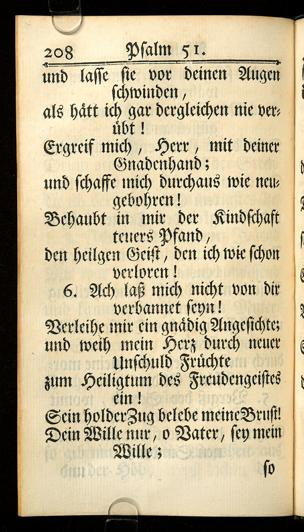 208 Psalm 51.
und lasse sie vor deinen Augen
schwinden,
als hätt ich gar dergleichen nie ver-
übt!
Ergreif mich, Herr, mit deiner
Gnadenhand;
und schaffe mich durchaus wie neu-
gebohren!
Behaubt in mir der Kindschaft
teuers Pfand,
den heilgen Geist, den ich wie schon
verloren!
6. Ach laß mich nicht von dir
verbannet seyn!
Verleihe mir ein gnädig Angesichte;
und weih mein Herz durch neuer
Unschuld Früchte
zum Heiligtum des Freudengeistes
ein!
Sein holder Zug belebe meine Brust!
Dein Wille nur, o Vater, sey mein
Wille;
so